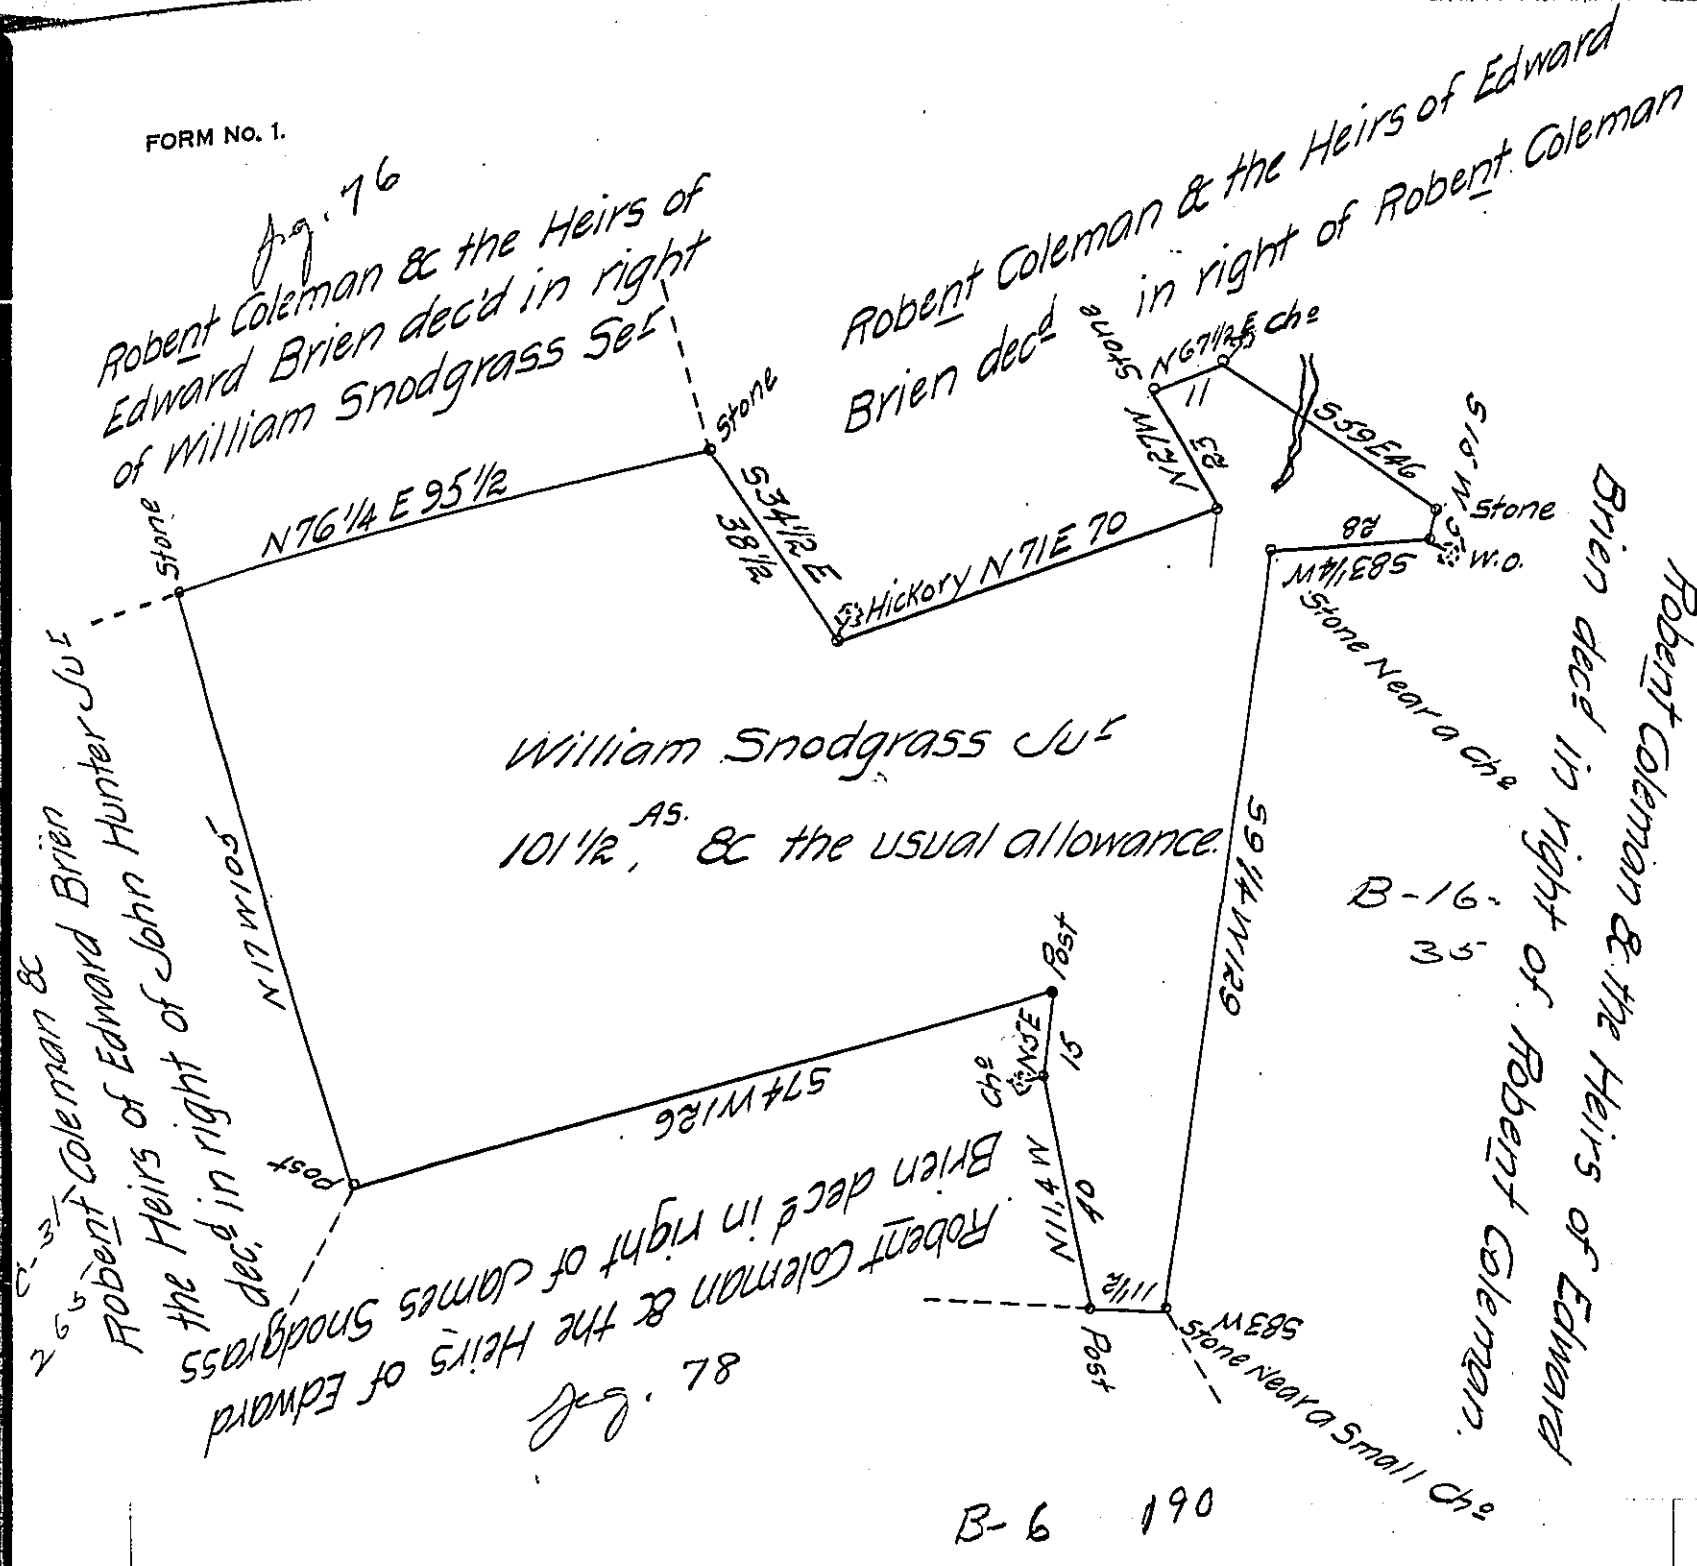 FORM No. 1.
fig. 76
Robent Coleman & the Heirs of
Edward Brien dec'd in right
of William Snodgrass Ser
Robent Coleman & the Heirs of Edward
Brien decd in right of Robent Coleman
Stone
N 76 1/4 E 95 1/2
Stone
S 34 1/2 E
38 1/2
Hickory N 71 E 70
N 27 W
23
Stone
N 67 1/2 E
11
Cho
S 59 E 46
S 10 W 5
Stone
W.O.
28
S 83 1/4 W
Stone Near a Cho
Robent Coleman & the Heirs of Edward
Brien decd in right of Robent Coleman.
William Snodgrass Jur
101 1/2 As. & the usual allowance.
S 9 1/4 W 129
B-16.
35
N 17 W 105
Robent Coleman &
Heirs of Edward Brien
the Heirs of John Hunter Jur
dec.d in right of
C-31
265
Post
S 74 W 126
Post
N 5 E
15
Cho
N 11,4 W
40
Post
11 1/2
S 83 W
Stone Near a Small Cho
Robent Coleman & the Heirs of Edward
Brien decd in right of James Snodgrass
fig. 78
B-6 190